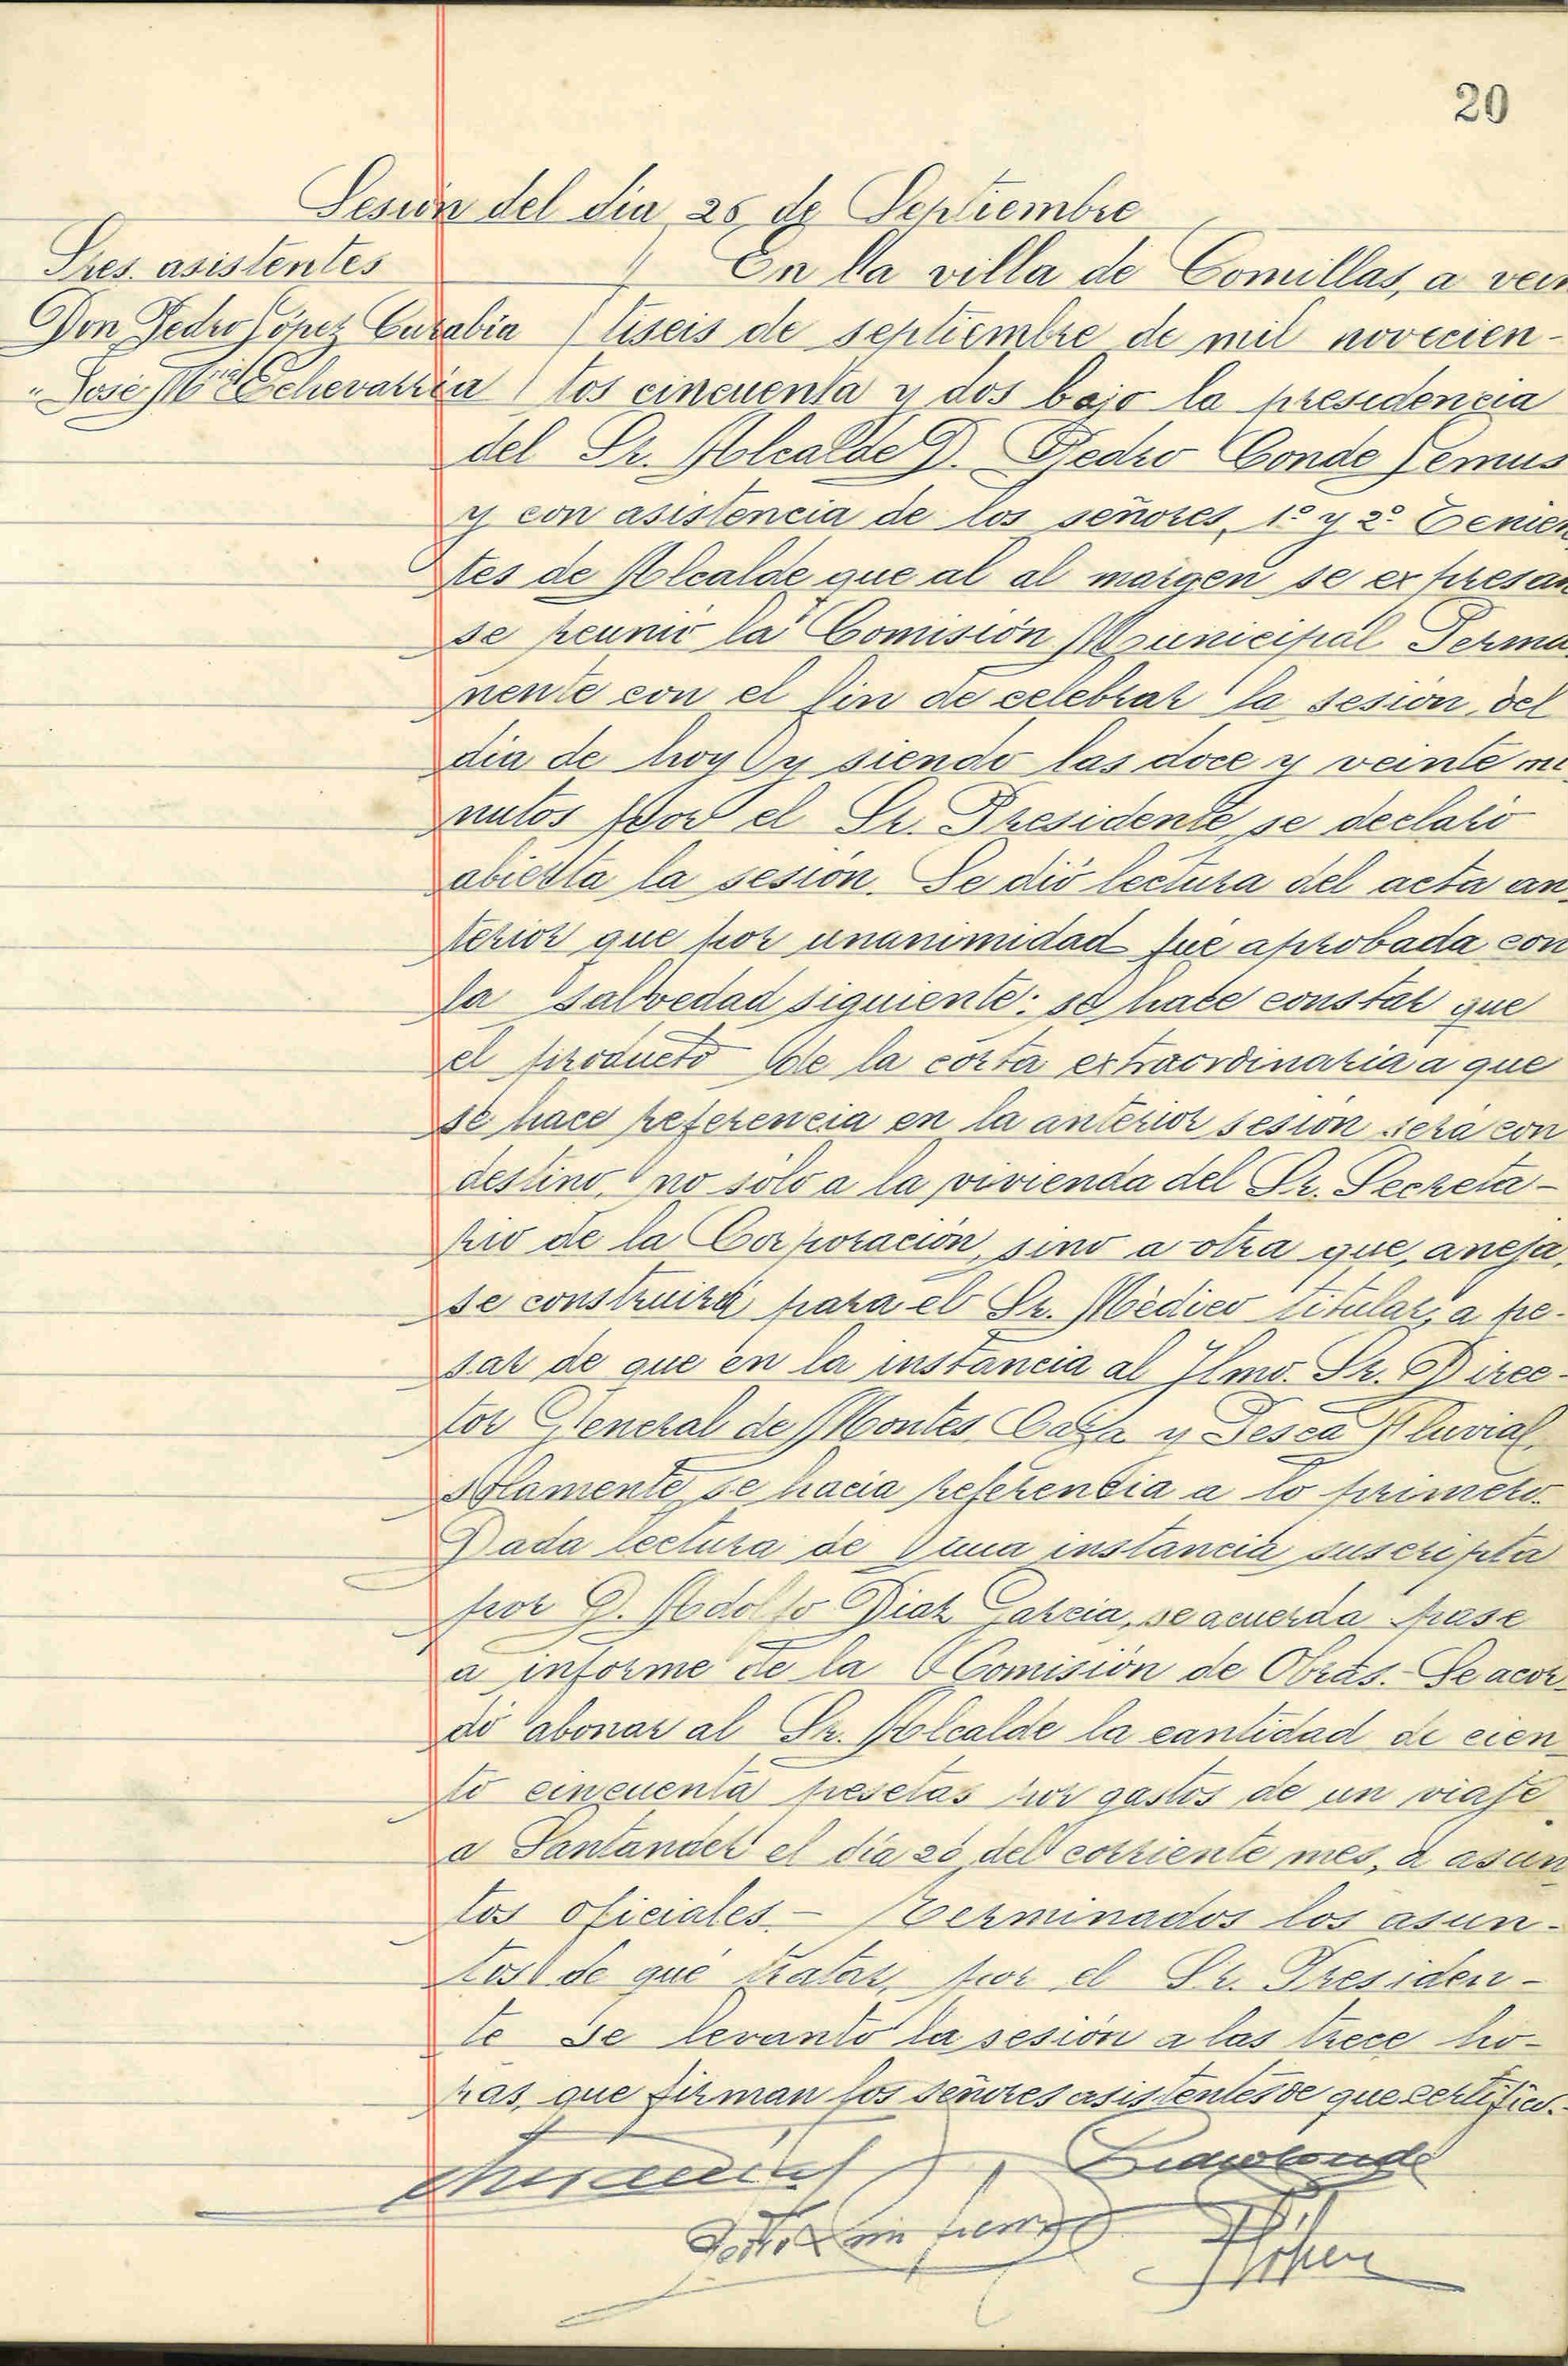 20
Sesión del día 26 de Septiembre
Sres. asistentes
Don Pedro López Curabia
" José Mª Echevarría
En la villa de Comillas, a vein
tiseis de septiembre de mil novecien-
tos cincuenta y dos bajo la presidencia
del Sr. Alcalde D. Pedro Conde Lemus
y con asistencia de los señores, 1º y 2º Tenien
tes de Alcalde que al al margen se expresan
se reunió la Comisión Municipal Perma
nente con el fin de celebrar la sesión del
día de hoy y siendo las doce y veinte mi
nutos por el Sr. Presidente se declaró
abierta la sesión. Se dió lectura del acta an
terior que por unanimidad fué aprobada con
la salvedad siguiente: se hace constar que
el producto de la corta extraordinaria a que
se hace referencia en la anterior sesión será con
destino, no sólo a la vivienda del Sr. Secreta-
rio de la Corporación, sino a otra que, aneja,
se construirá para el Sr. Médico titular, a pe-
sar de que en la instancia al Ilmo. Sr. Direc-
tor General de Montes, Caza y Pesca Fluvial,
solamente se hacía referencia a lo primero.
Dada lectura de una instancia suscripta
por D. Adolfo Diaz García, se acuerda pase
a informe de la Comisión de Obras.- Se acor
dó abonar al Sr. Alcalde la cantidad de cien
to cincuenta pesetas por gastos de un viaje
a Santander el día 20 del corriente mes, a asun
tos oficiales.- Terminados los asun-
tos de que tratar, por el Sr. Presiden-
te se levantó la sesión a las trece ho-
ras, que firman los señores asistentes de que certifico.-